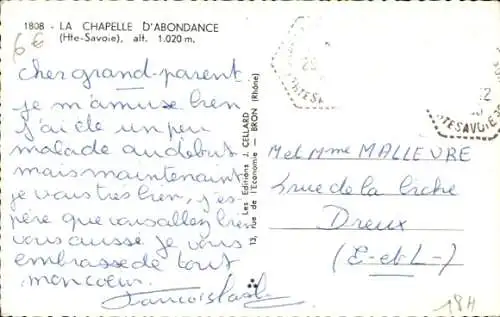 1808 - LA CHAPELLE D'ABONDANCE
(Hte-Savoie), alt. 1.020 m.
6€
cher grand-parent
je m'amuse bien
j'ai été un peu
malade au debut
mais maintenant
je vais tres bien, j'es-
père que vous allez bien
vous aussi je vous
embrasse de tout
mon coeur.
Les Editions J. CELLARD
13, rue de l'Economie — BRON (Rhône)
M et Mme MALLEVRE
rue de la biche
Dreux
(E-et-L-)
184